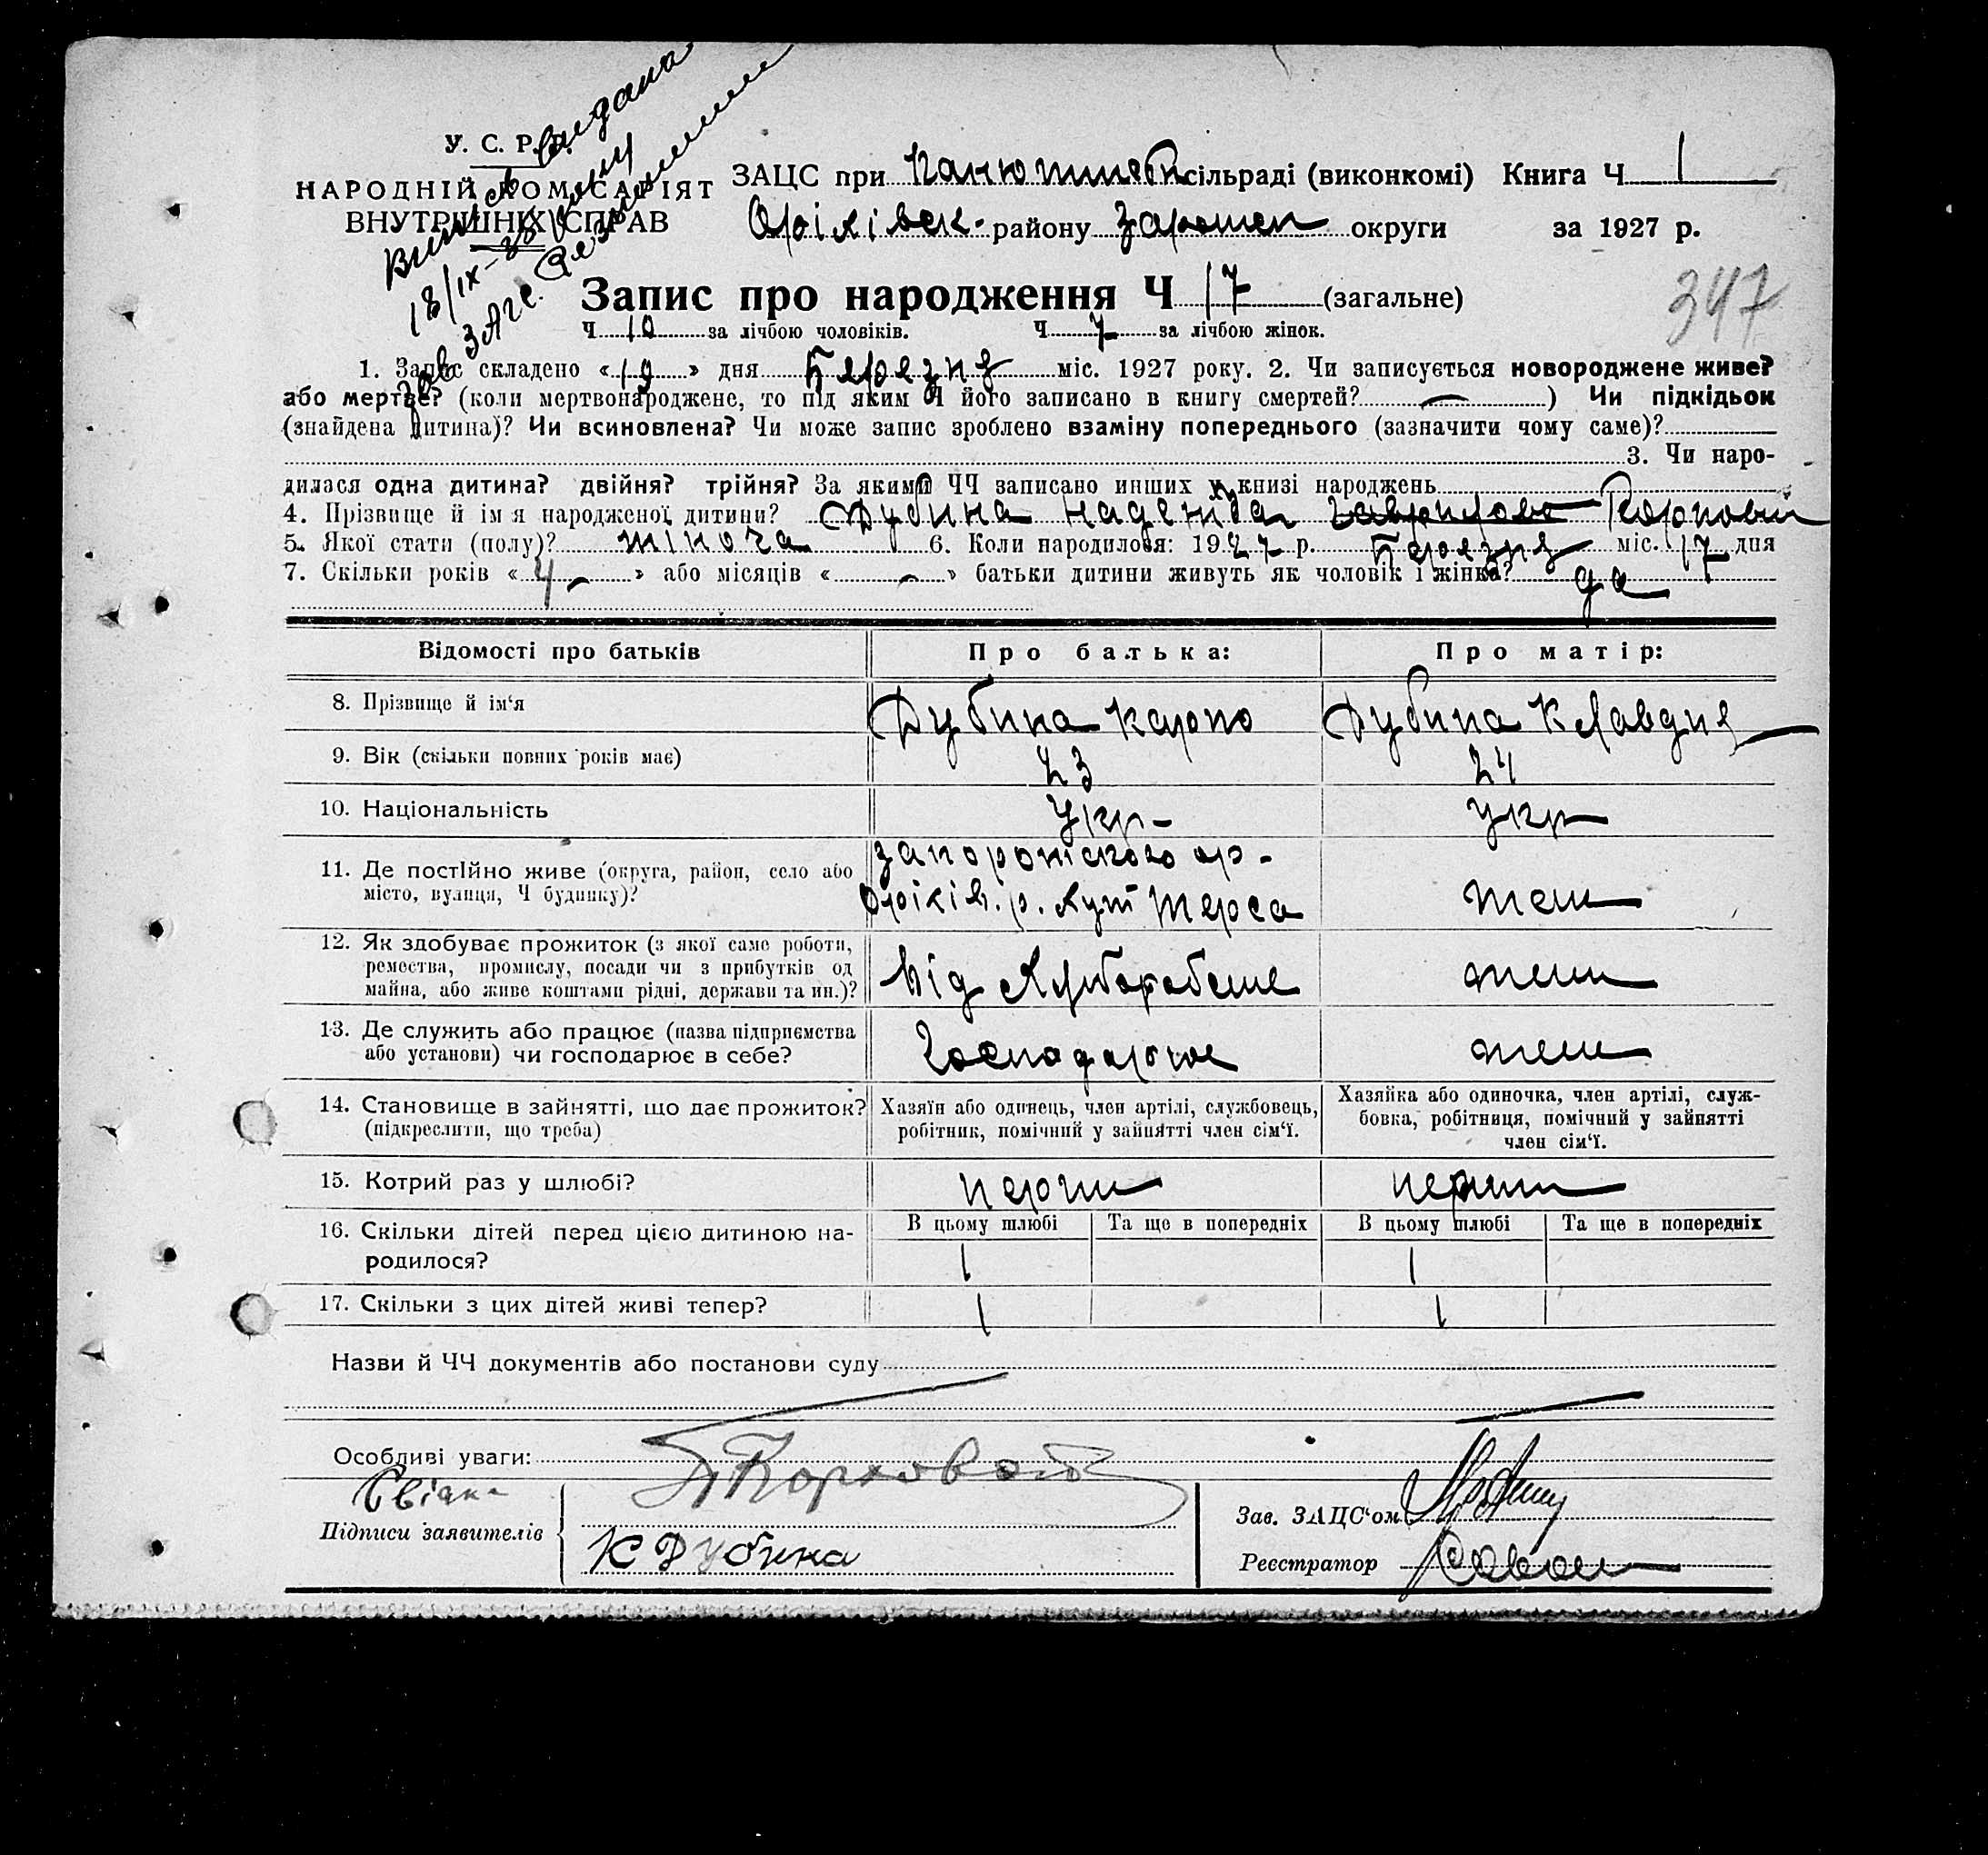 У. С. Р. Р.
НАРОДНІЙ КОМІСАРІЯТ
ВНУТРІШНІХ СПРАВ
видана
18/IX-
ЗАЦС при сільраді (виконкомі) Книга Ч 1
Оріхівськ. району Запоріж округи за 1927 р.
Запис про народження Ч 17 (загальне)
347
Ч 10 за лічбою чоловіків. Ч 7 за лічбою жінок.
1. Запис складено «19» дня Березня міс. 1927 року. 2. Чи записується новороджене живе?
або мертве? (коли мертвонароджене, то під яким Ч його записано в книгу смертей? — ) Чи підкідьок
(знайдена дитина)? Чи всиновлена? Чи може запис зроблено взаміну попереднього (зазначити чому саме)?
3. Чи наро-
дилася одна дитина? двійня? трійня? За якими ЧЧ записано инших у книзі народжень
4. Прізвище й ім'я народженої дитини? Дубина Надежда Гаврилова
5. Якої стати (полу)? жіноча 6. Коли народилося: 1927 р. Березня міс. 17 дня
7. Скільки років «4 –» або місяців « – » батьки дитини живуть як чоловік і жінка? да
Відомості про батьків Про батька: Про матір:
8. Прізвище й ім'я Дубина Карпо Дубина Клавдия
9. Вік (скільки повних років має) 23 24
10. Національність Укр- Укр
11. Де постійно живе (округа, район, село або
місто, вулиця, Ч будинку)?
Запорожського ок-
Оріхів. р. Кут Терса теж
12. Як здобуває прожиток (з якої саме роботи,
ремества, промислу, посади чи з прибутків од
майна, або живе коштами рідні, держави та ин.)?
Від теж
13. Де служить або працює (назва підприємства
або установи) чи господарює в себе?
Господарює теж
14. Становище в зайнятті, що дає прожиток?
(підкреслити, що треба)
Хазяїн або одинець, член артілі, службовець,
робітник, помічний у зайнятті член сім'ї.
Хазяйка або одиночка, член артілі, служ-
бовка, робітниця, помічний у зайнятті
член сім'ї.
15. Котрий раз у шлюбі? перши перши
16. Скільки дітей перед цією дитиною на-
родилося?
В цьому шлюбі Та ще в попередніх В цьому шлюбі Та ще в попередніх
1 1
17. Скільки з цих дітей живі тепер? 1 1
Назви й ЧЧ документів або постанови суду
Особливі уваги:
Свідки
Підписи заявителів
К Дубина
Зав. ЗАЦС'ом
Реєстратор